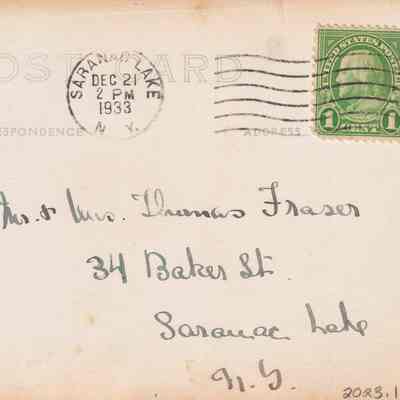 POST CARD
SARANAC LAKE
DEC 21
2 PM
1933
N. Y.
UNITED STATES POSTAGE
1 1
CORRESPONDENCE
ADDRESS
Mr. & Mrs. Thomas Fraser
34 Baker St.
Saranac Lake
N.Y.
2023.1